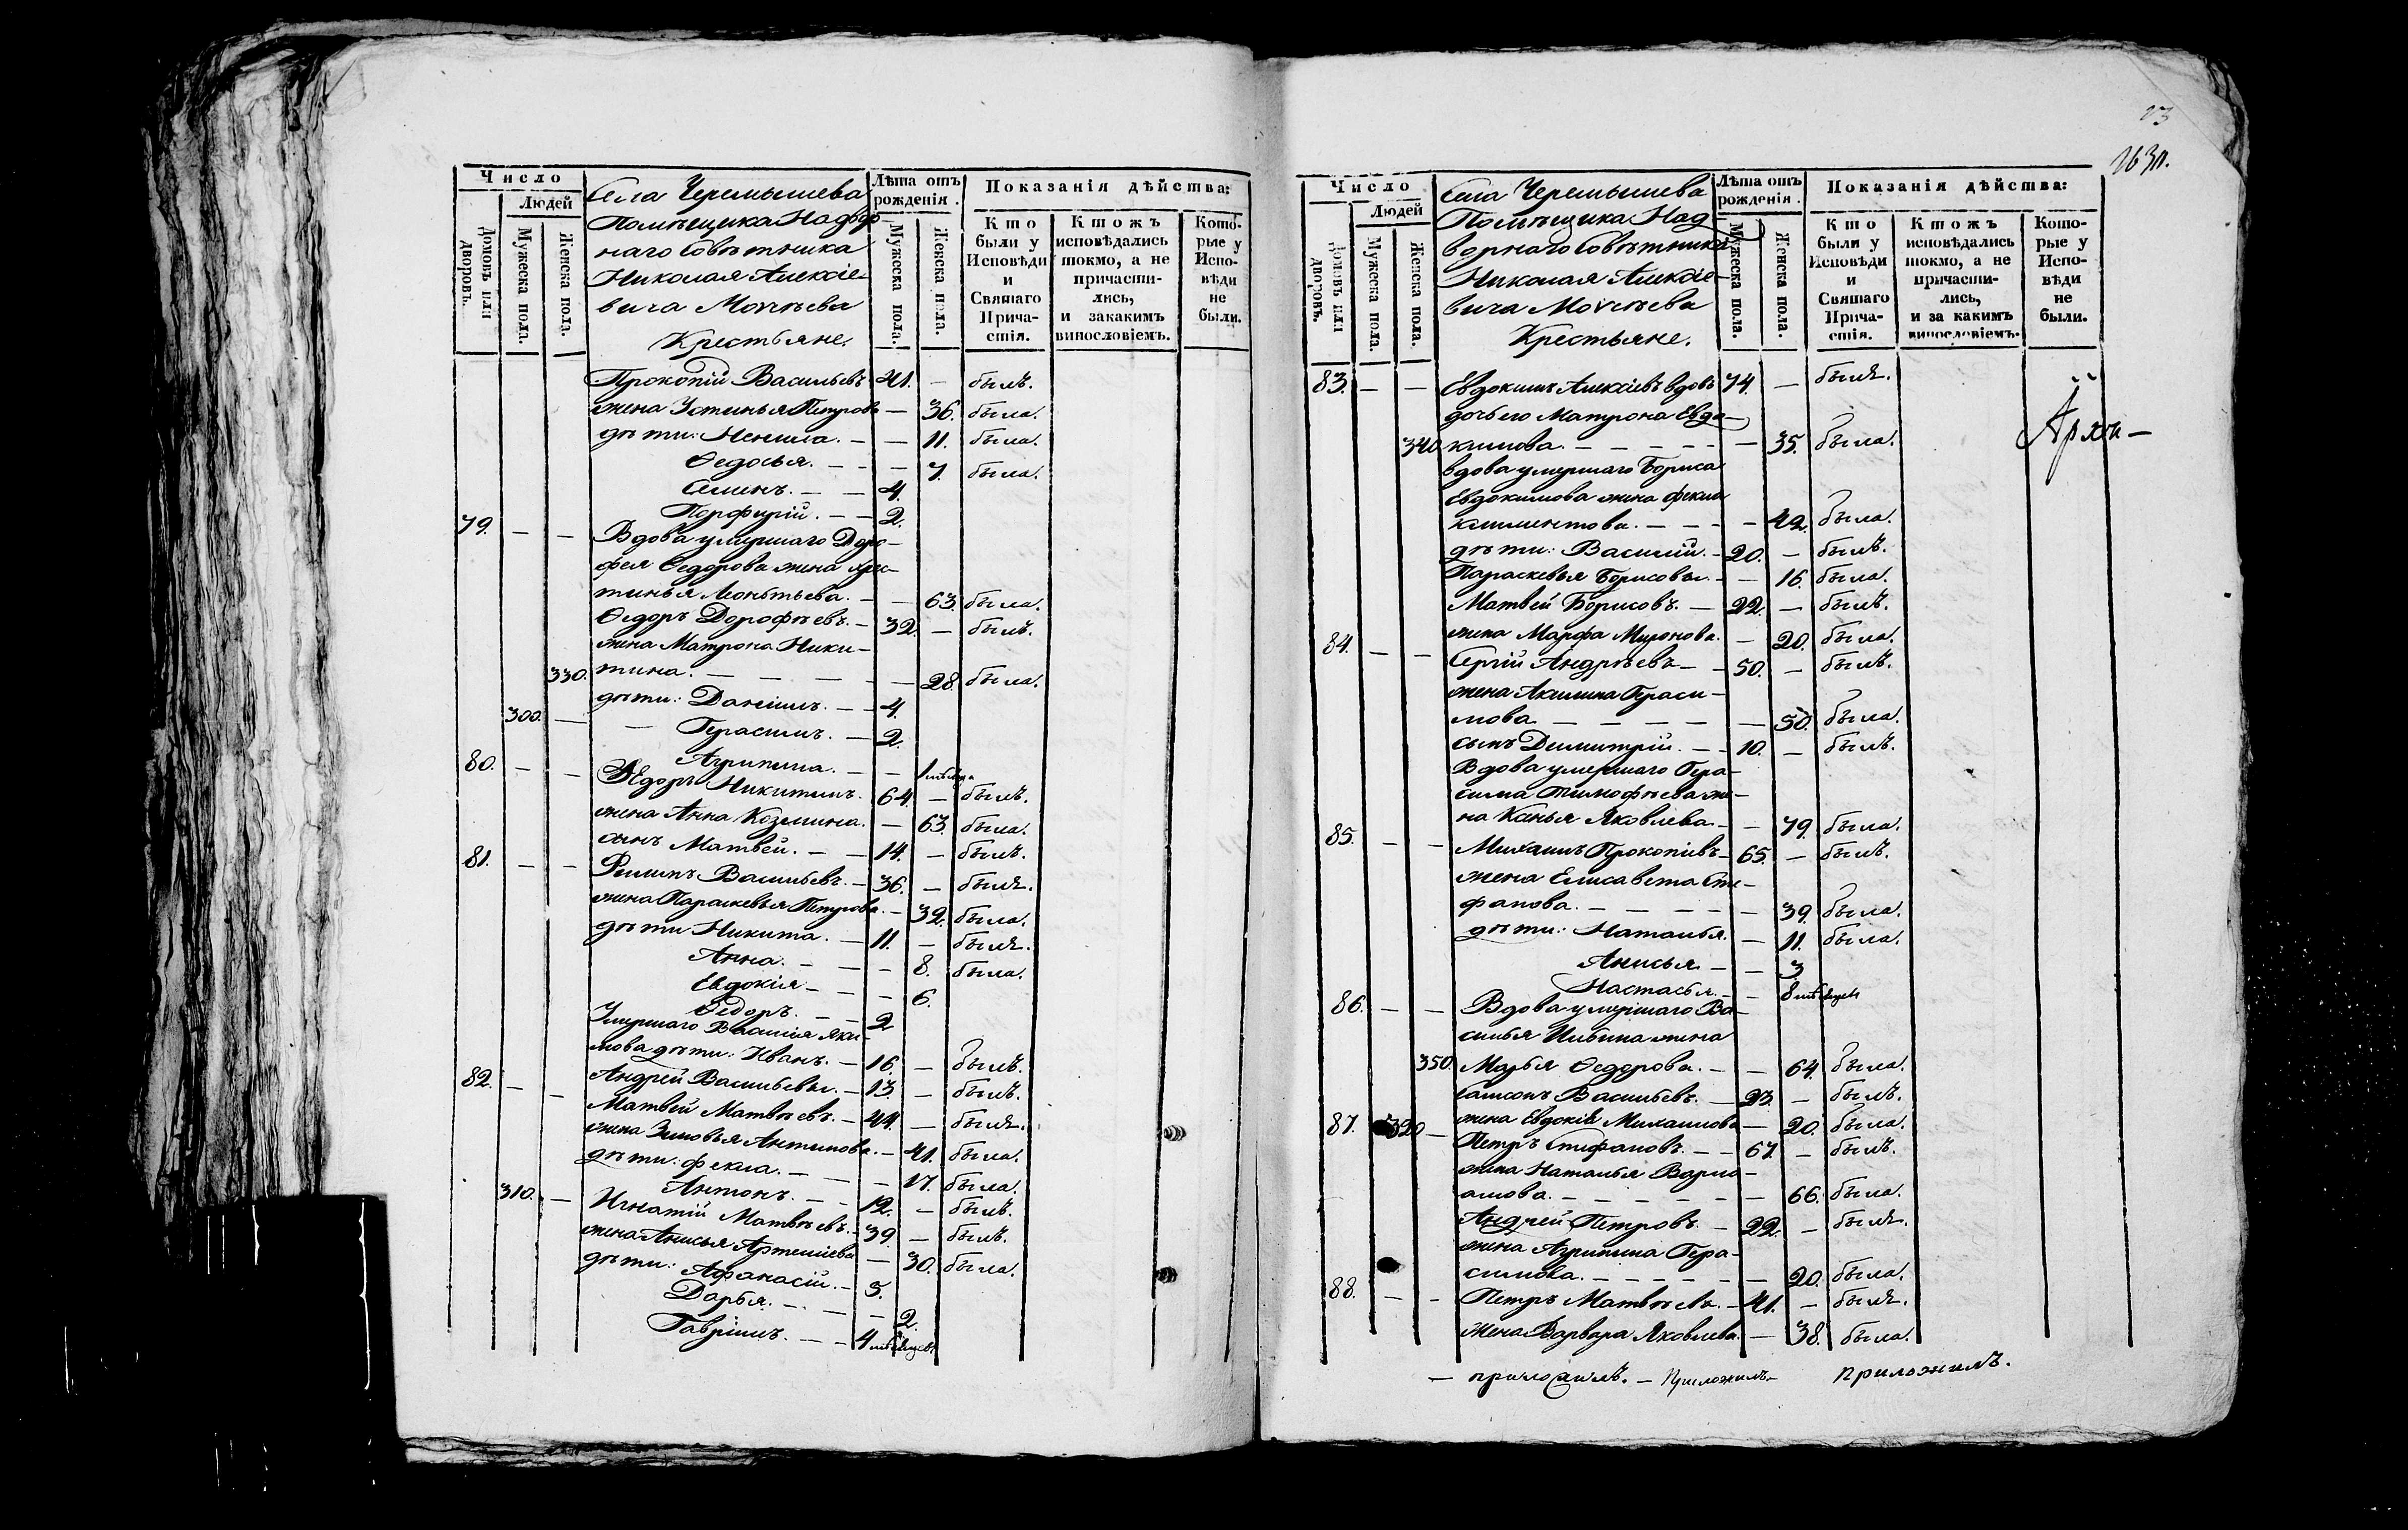 Число
Людей
Домовъ или дворовъ.
Мужеска пола.
Женска пола.
Села Черемышева
Помѣщика Надвор-
наго Совѣтника
Николая Алексіе-
вича Мочнева
Крестьяне.
Лѣта отъ рожденія.
Мужеска пола.
Женска пола.
Показанія дѣйства:
Кто были у Исповѣди и Святаго Прича- стія.
Ктожъ исповѣдались токмо, а не причасти- лись, и закакимъ винословіемъ.
Кото- рые у Испо- вѣди не были.
Прокопій Васильевъ 41. — былъ.
жена Устинья Петрова — 36. была.
дѣти: Ненила. — — 11. была.
Ѳедосья. — — — 7. была.
Семенъ. — — 4.
Порфирій. — — 2.
79. — — Вдова умершаго Доро-
фея Ѳедорова жена Хри-
тинья Леонтьева. — — 63. была.
Ѳедоръ Дорофѣевъ. — 32. — былъ.
жена Матрона Ники-
330. тина. — — — — — 28. была.
дѣти: Даніилъ. — — 4.
300. — — Герасимъ. — 2.
Агрипина. — — 1 мѣсяца
80. — — Ѳедоръ Никитинъ. 64. — былъ.
жена Анна Козмина. — 63. была.
сынъ Матвей. — — 14. — былъ.
81. — — Филипъ Васильевъ. — 36. — былъ.
жена Параскевья Петрова. — 32. была.
дѣти Никита. — 11. — былъ.
Анна. — — — 8. была.
Евдокія — — — 6.
Ѳедоръ. — — 2
Умершаго Василія Яки-
мова дѣти: Иванъ. — 16. — былъ.
Андрей Васильевы. — 13. — былъ.
82. — — Матвей Матвѣевъ. — 44. — былъ.
жена Зиновья Антипова. — 41. была.
дѣти: Фекла. — — — 17. была.
Антонъ. — — 12. — былъ.
310. — Игнатій Матвѣевъ. — 39. — былъ.
жена Анисья Артеміева — 30. была.
дѣти: Афанасій. — 5.
Дарья. — — — 2.
Гавріилъ. — — 4 мѣсяцев.
23
163л.
Число
Людей
Домовъ или дворовъ.
Мужеска пола.
Женска пола.
Села Черемышева
Помѣщика Над-
ворнаго Совѣтника
Николая Алексіе-
вича Мочнева
Крестьяне.
Лѣта отъ рожденія.
Мужеска пола.
Женска пола.
Показанія дѣйства:
Кто были у Исповѣди и Святаго Прича- стія.
Ктожъ исповѣдались токмо, а не причасти- лись, и за какимъ винословіемъ.
Кото- рые у Испо- вѣди не были.
83. — — Евдокимъ Алексіевъ вдовъ 74. — былъ.
дочь его Матрона Евдо-
340 кимова. — — — — — 35. была.
вдова умершаго Бориса
Евдокимова жена Фекла
Климентова. — — — — 42. была.
дѣти: Василій. — 20. — былъ.
Параскевья Борисовы. — — 16. была.
Матвей Борисовъ. — 22. — былъ.
жена Марфа Миронова. — 20. была.
84. — — Сергій Андрѣевъ — — 50. — былъ.
жена Акилина Гераси-
мова. — — — — — 50. была.
сынъ Димитрій. — — 10. — былъ.
Вдова умершаго Гера-
сима Тимофѣева же-
на Ксенья Яковлева. — — 79. была.
85. — — Михаилъ Прокопіевъ — 65. — былъ.
жена Елисавета Сте-
фанова. — — — — — 39. была.
дѣти: Наталья. — 11. была.
Анисья — — 3
Настасья. — — 8 мѣсяцевъ
86. — — Вдова умершаго Ва-
силья Ильина жена
350. Марья Ѳедорова. — — 64. была.
Самсонъ Васильевъ. — 23. — былъ.
жена Евдокія Михаилова — 20. была.
87. 320 — Петръ Стефановъ. — — 67. — былъ.
жена Наталья Варла-
амова. — — — — — — 66. была.
Андрей Петровъ. — 22. — былъ.
жена Агрипина Гера-
симова. — — — — — — 20. была.
88. — — Петръ Матвѣевъ. — 41. — былъ.
Жена Варвара Яковлева. — 38. была.
— приложилъ. — Приложилъ. — Приложилъ.